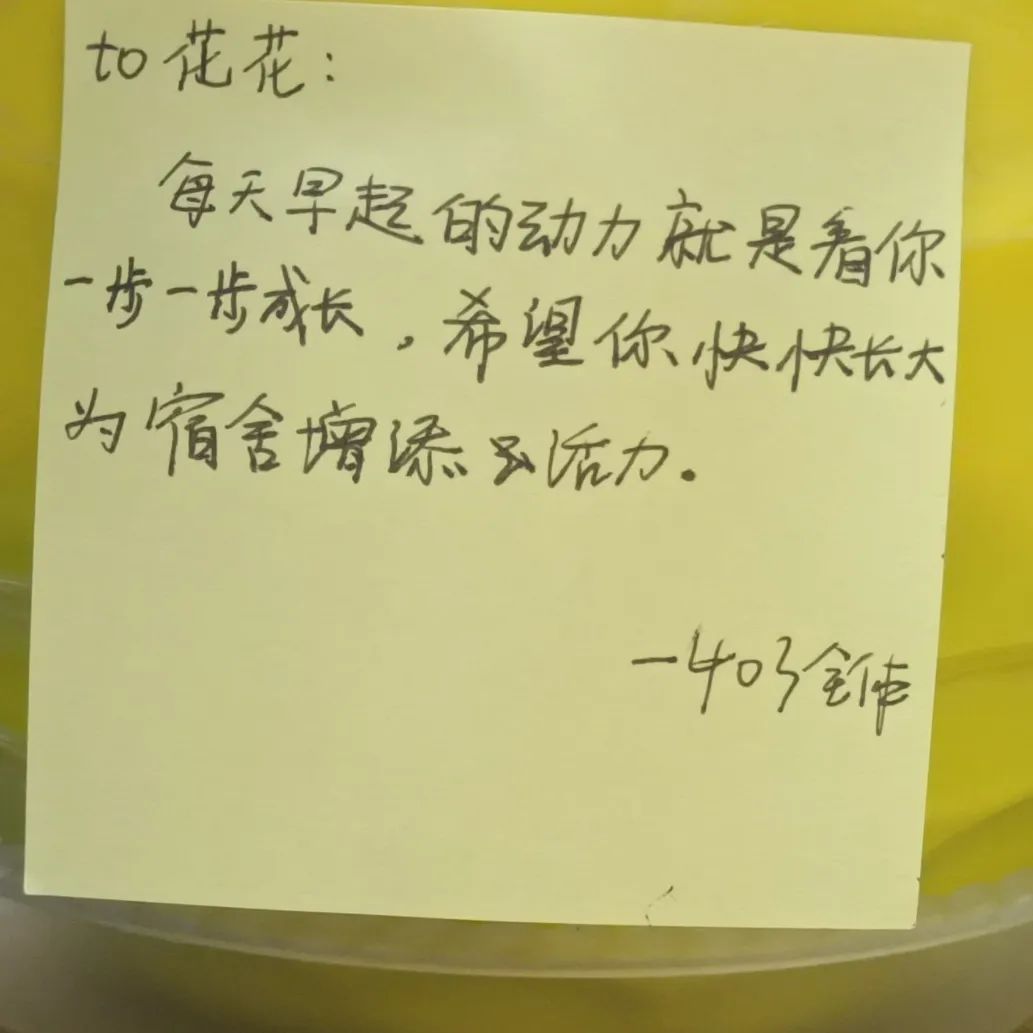 to 花花：
每天早起的动力就是看你
一步一步成长，希望你快快长大
为宿舍增添活力。
—403全体